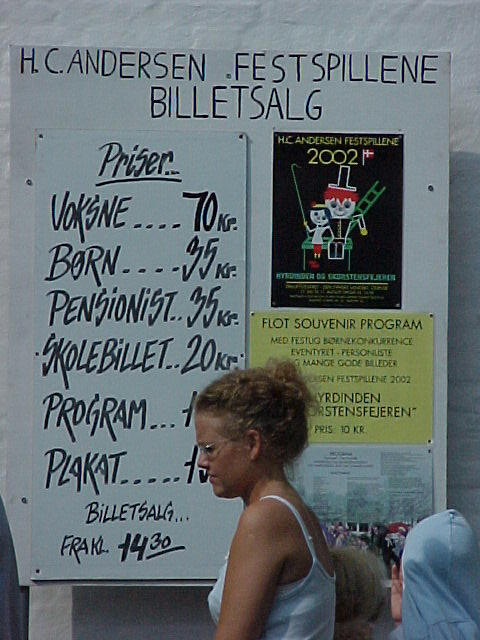 H.C. ANDERSEN FESTSPILLENE
BILLETSALG
Priser...
VOKSNE .... 70 Kr.
BØRN .... 35 Kr.
PENSIONIST.. 35 Kr.
SKOLEBILLET.. 20 Kr.
PROGRAM...
PLAKAT.....
BILLETSALG...
FRA KL. 14 30
H.C. ANDERSEN FESTSPILLENE
2002
HYRDINDEN OG SKORSTENSFEJEREN
FLOT SOUVENIR PROGRAM
MED FESTLIG BØRNEKONKURRENCE
EVENTYRET - PERSONLISTE
MANGE GODE BILLEDER
FESTSPILLENE 2002
PRIS: 10 KR.